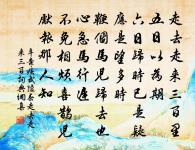 走去走来三百里
五日以為期
六日歸時已是疑
應是望多時
鞭個馬兒歸去也
心急馬行遲
不免相煩喜鵲兒
報那人知
辛棄疾武陵春走去走
来三百里